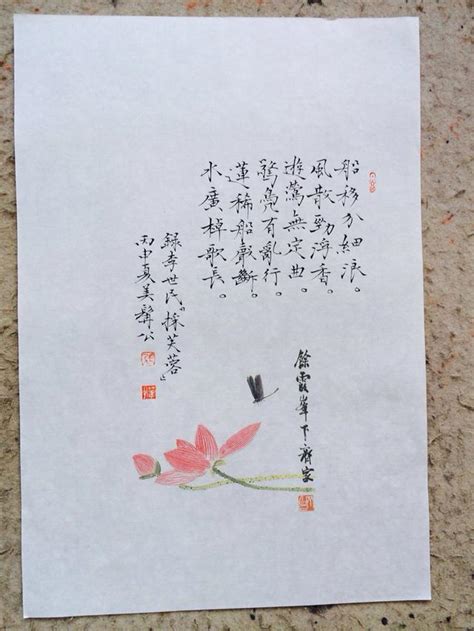 船移分細浪。
風散動浮香。
遊鶯無定曲。
驚鳧有亂行。
蓮稀船聲斷。
水廣棹歌長。
錄李世民『採芙蓉』
丙申夏美髯公
餘霞峯下